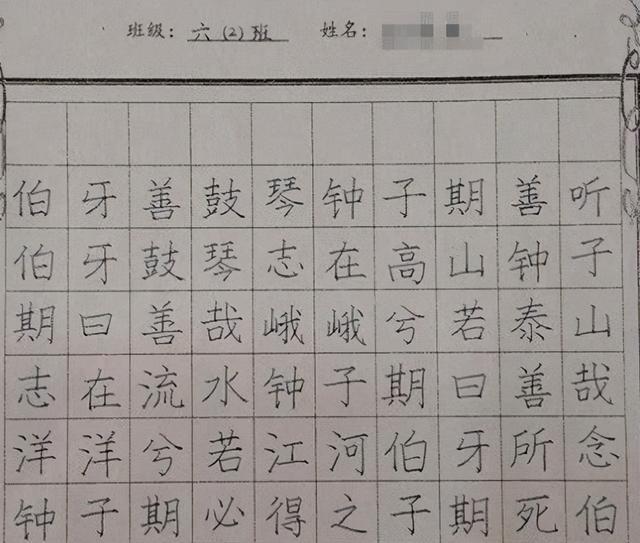 班级：六（2）班 姓名：
伯牙善鼓琴钟子期善听
伯牙鼓琴志在高山钟子
期曰善哉峨峨兮若泰山
志在流水钟子期曰善哉
洋洋兮若江河伯牙所念
钟子期必得之子期死伯